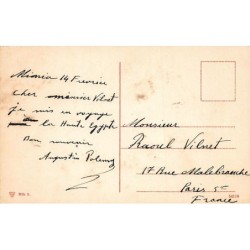 Minia 14 Fevrier
Cher monsieur Vilnet
je suis en voyage
la Haute Egypte
Bon souvenir
Augustin
Monsieur
Raoul Vilnet
17 Rue Malebranche
Paris 5e
France